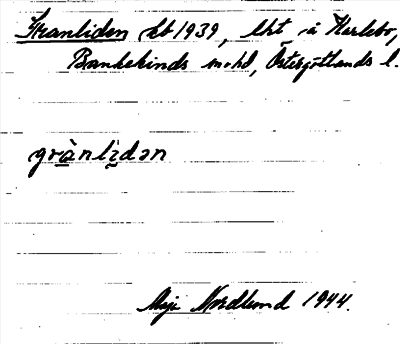 Granliden kb 1939, lht å Karlebo,
Bankekinds sn o hd, Östergötlands l.
grànlìdən
Maja Nordlund 1944.